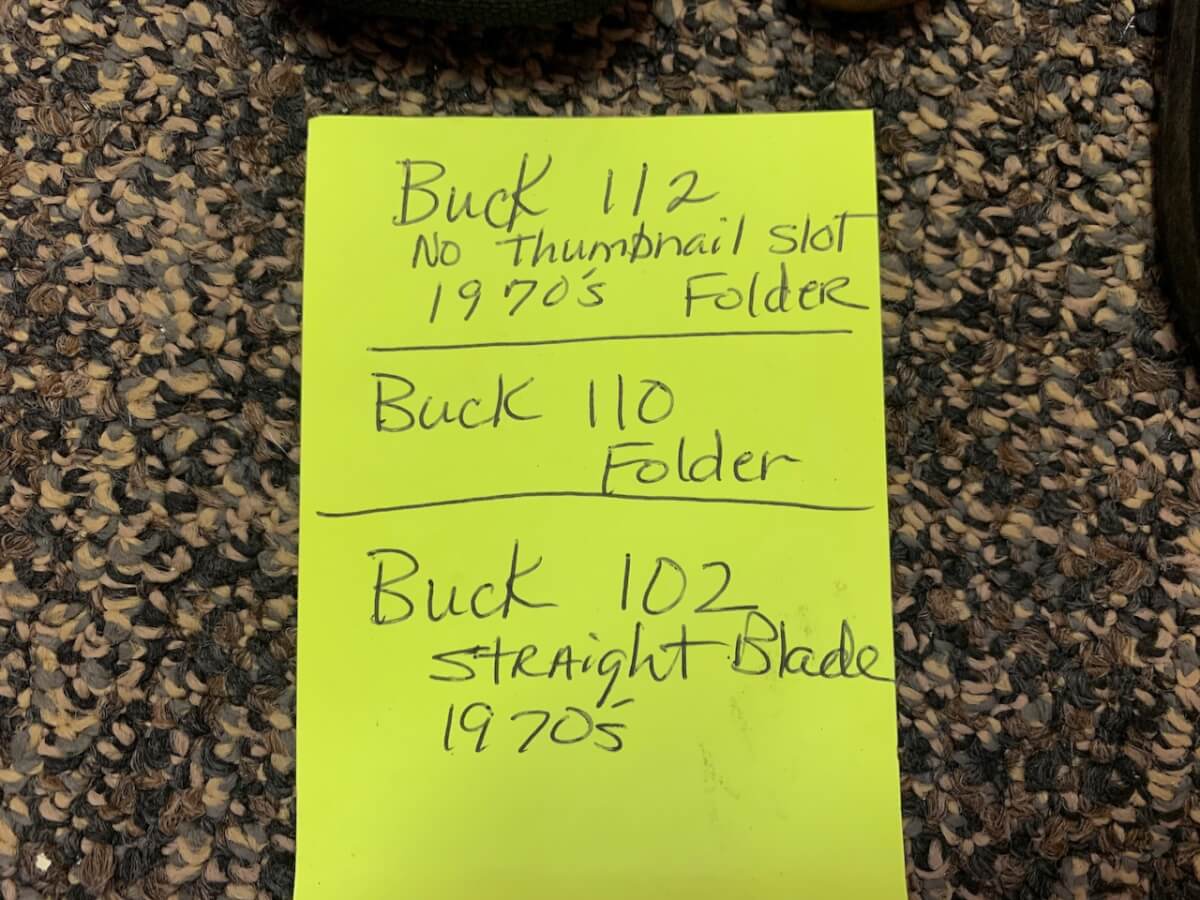 Buck 112
No Thumbnail Slot
1970's Folder
Buck 110
Folder
Buck 102
Straight Blade
1970's